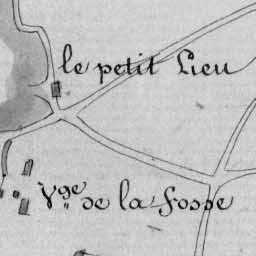 le petit Lieu
Vge de la Fosse